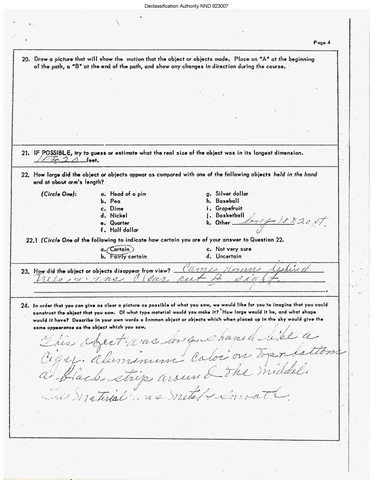 Declassification Authority NND 923007
Page 4
20. Draw a picture that will show the motion that the object or objects made. Place an "A" at the beginning
of the path, a "B" at the end of the path, and show any changes in direction during the course.
21. IF POSSIBLE, try to guess or estimate what the real size of the object was in its longest dimension.
18 to 20 feet.
22. How large did the object or objects appear as compared with one of the following objects held in the hand
and at about arm's length?
(Circle One): a. Head of a pin g. Silver dollar
b. Pea h. Baseball
c. Dime i. Grapefruit
d. Nickel j. Basketball
e. Quarter k. Other long 18 & 20 ft.
f. Half dollar
22.1 (Circle One of the following to indicate how certain you are of your answer to Question 22.
a. Certain c. Not very sure
b. Fairly certain d. Uncertain
23. How did the object or objects disappear from view? Came down behind
was clear out of sight.
24. In order that you can give as clear a picture as possible of what you saw, we would like for you to imagine that you could
construct the object that you saw. Of what type material would you make it? How large would it be, and what shape
would it have? Describe in your own words a common object or objects which when placed up in the sky would give the
same appearance as the object which you saw.
This object was long shaped like a
Cigar. aluminum color on top & bottom
a black strip around the middel.
material was metal & smooth.